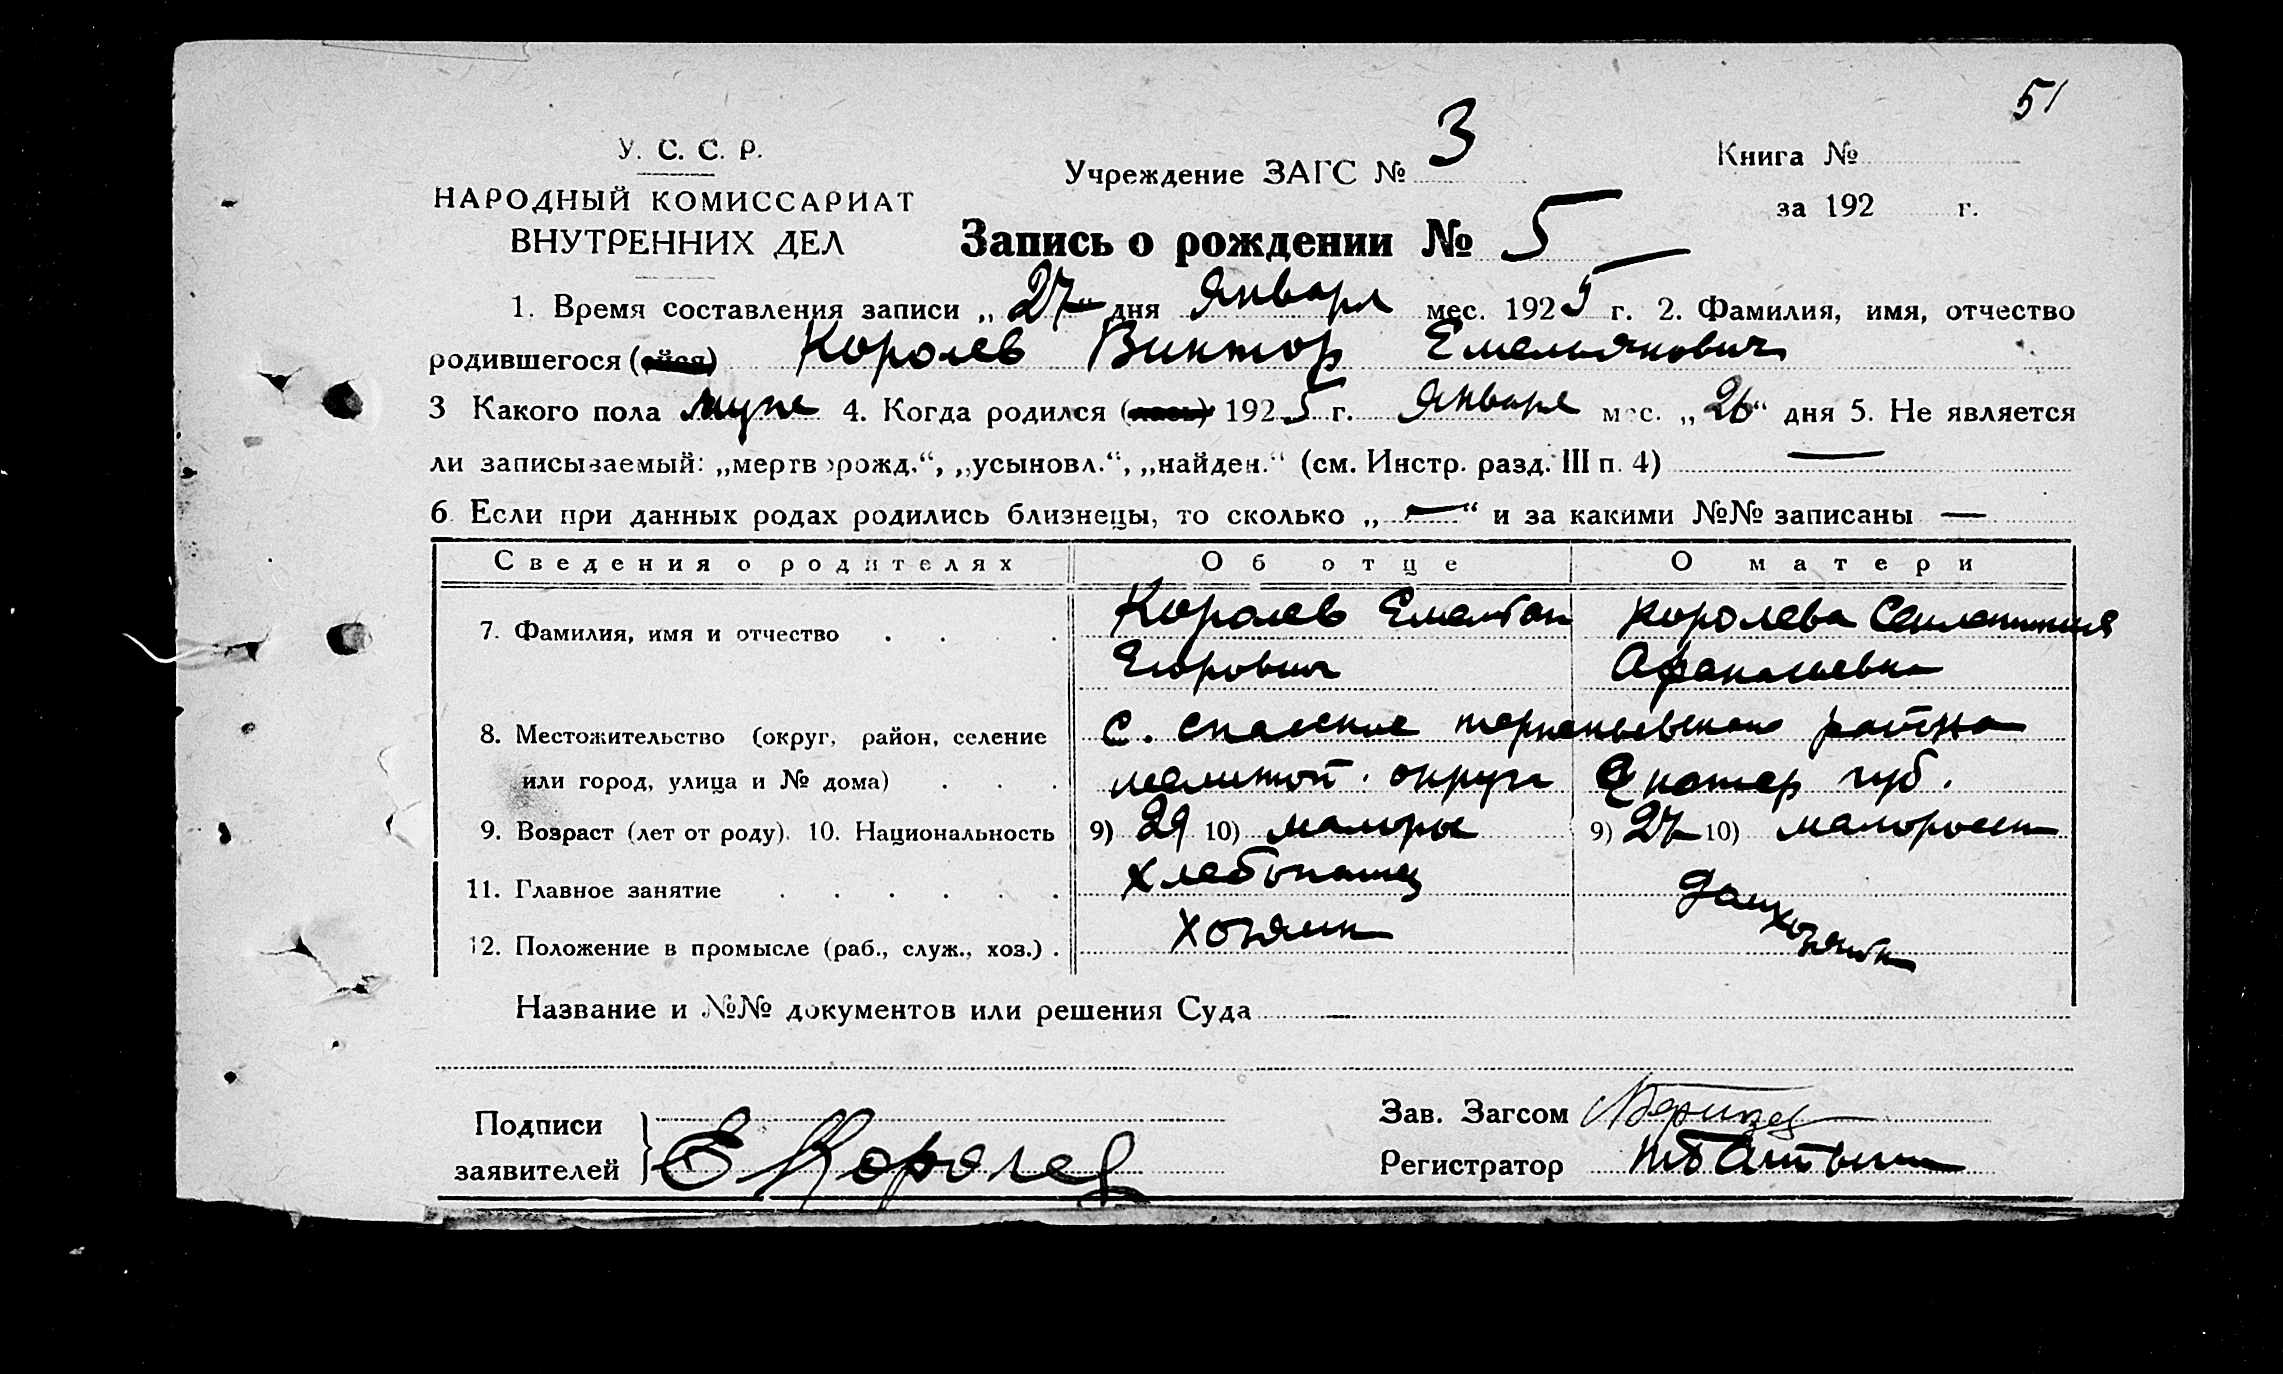 51
У. С. С. Р.
НАРОДНЫЙ КОМИССАРИАТ
ВНУТРЕННИХ ДЕЛ
Учреждение ЗАГС № 3
Книга №
за 192 г.
Запись о рождении № 5
1. Время составления записи „27“ дня Января мес. 1925 г. 2. Фамилия, имя, отчество
родившегося (ойся) Королев Виктор Емельянович
3 Какого пола муж 4. Когда родился (лась) 1925 г. Января мес. „26“ дня 5. Не является
ли записываемый: „мертворожд.“, „усыновл.“, „найден.“ (см. Инстр. разд. III п. 4) —
6. Если при данных родах родились близнецы, то сколько „—“ и за какими №№ записаны —
Сведения о родителях Об отце О матери
7. Фамилия, имя и отчество Королев Емельян Королева
Егорович Афанасьевна
8. Местожительство (округ, район, селение с. Спаское района
или город, улица и № дома) мелитоп. округа Екатер губ.
9. Возраст (лет от роду). 10. Национальность 9) 29 10) малорос 9) 27 10) малоросска
11. Главное занятие хлебопашец домхозяйка
12. Положение в промысле (раб., служ., хоз.) хозяин
Название и №№ документов или решения Суда —
Подписи
заявителей Е Королев
Зав. Загсом
Регистратор